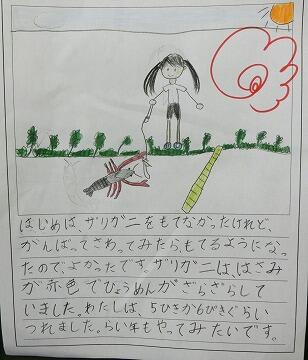 はじめは、ザリガニをもてなかったけれど、
がんばってさわってみたら、もてるようになっ
たので、よかったです。ザリガニは、はさみ
が赤色でひょうめんがざらざらして
いました。わたしは、5ひきか6ぴきぐらい
つれました。らい年もやってみたいです。